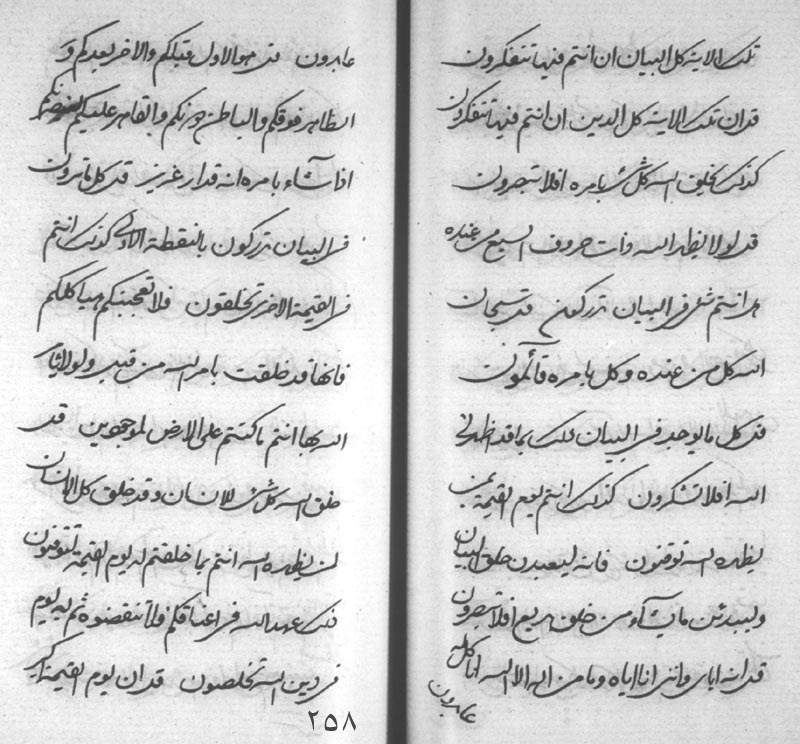 تلك الاية كل البيان ان انتم فيها تتفكرون
قد ان تلك الاية كل الدين ان انتم فيها تتفكرون
كذلك يخلق الله كل شئ بامره افلا تبصرون
قد لولا يظهر الله ذات حروف السبع من عنده
هل انتم شئ في البيان تدركون قد سبحان
الله كل من عنده وكل بامره قائمون
قد كل ما يوجد في البيان ذلك بما قد اظهرني
الله افلا تشكرون كذلك انتم يوم القيمة بمن
يظهره الله توقنون فانه ليعيدن خلق البيان
وليبدئن ما يشاء من خلق بديع افلا تبصرون
قد انه اياي وانني انا اياه وما من اله الا الله انا كل له
عابدون
عابدون قد هو الاول قبلكم والاخر بعدكم و
الظاهر فوقكم والباطن دونكم والقاهر عليكم
اذا شاء بامره انه قدار عزيز قد كل ما ترون
في البيان تدركون بالنقطة الاولى كذلك انتم
في القيمة الاخرى تخلقون فلا تعجبنكم هياكلكم
فانها قد خلقت بامر الله من قبل ولولا يشاء
الله بها انتم ما كنتم على الارض لموجودين قد
خلق الله كل شئ للانسان وقد خلق كل الانسان
لمن يظهره الله انتم بما خلقتم له يوم القيمة لتوقنون
ذلك عهد الله في اعناقكم فلا تنقضوه ثم ليوم
في دين الله تخلصون قد ان يوم القيمة
٢٥٨